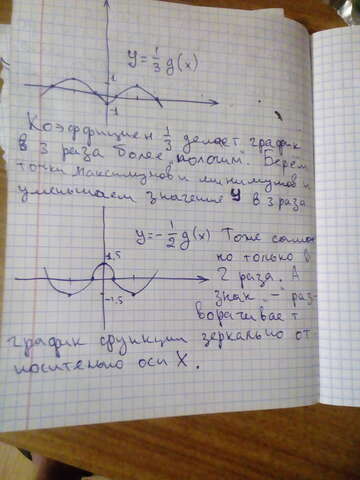 y = 1/3 g(x)
1
-1
Коэффициен 1/3 делает график
в 3 раза более пологим. Берем
точки максимумов и минимумов и
уменьшаем значение y в 3 раза
y = -1/2 g(x) Тоже самое
1,5
но только в
2 раза. А
-1,5
знак "-" раз-
ворачивает
график функции зеркально от-
носительно оси X.